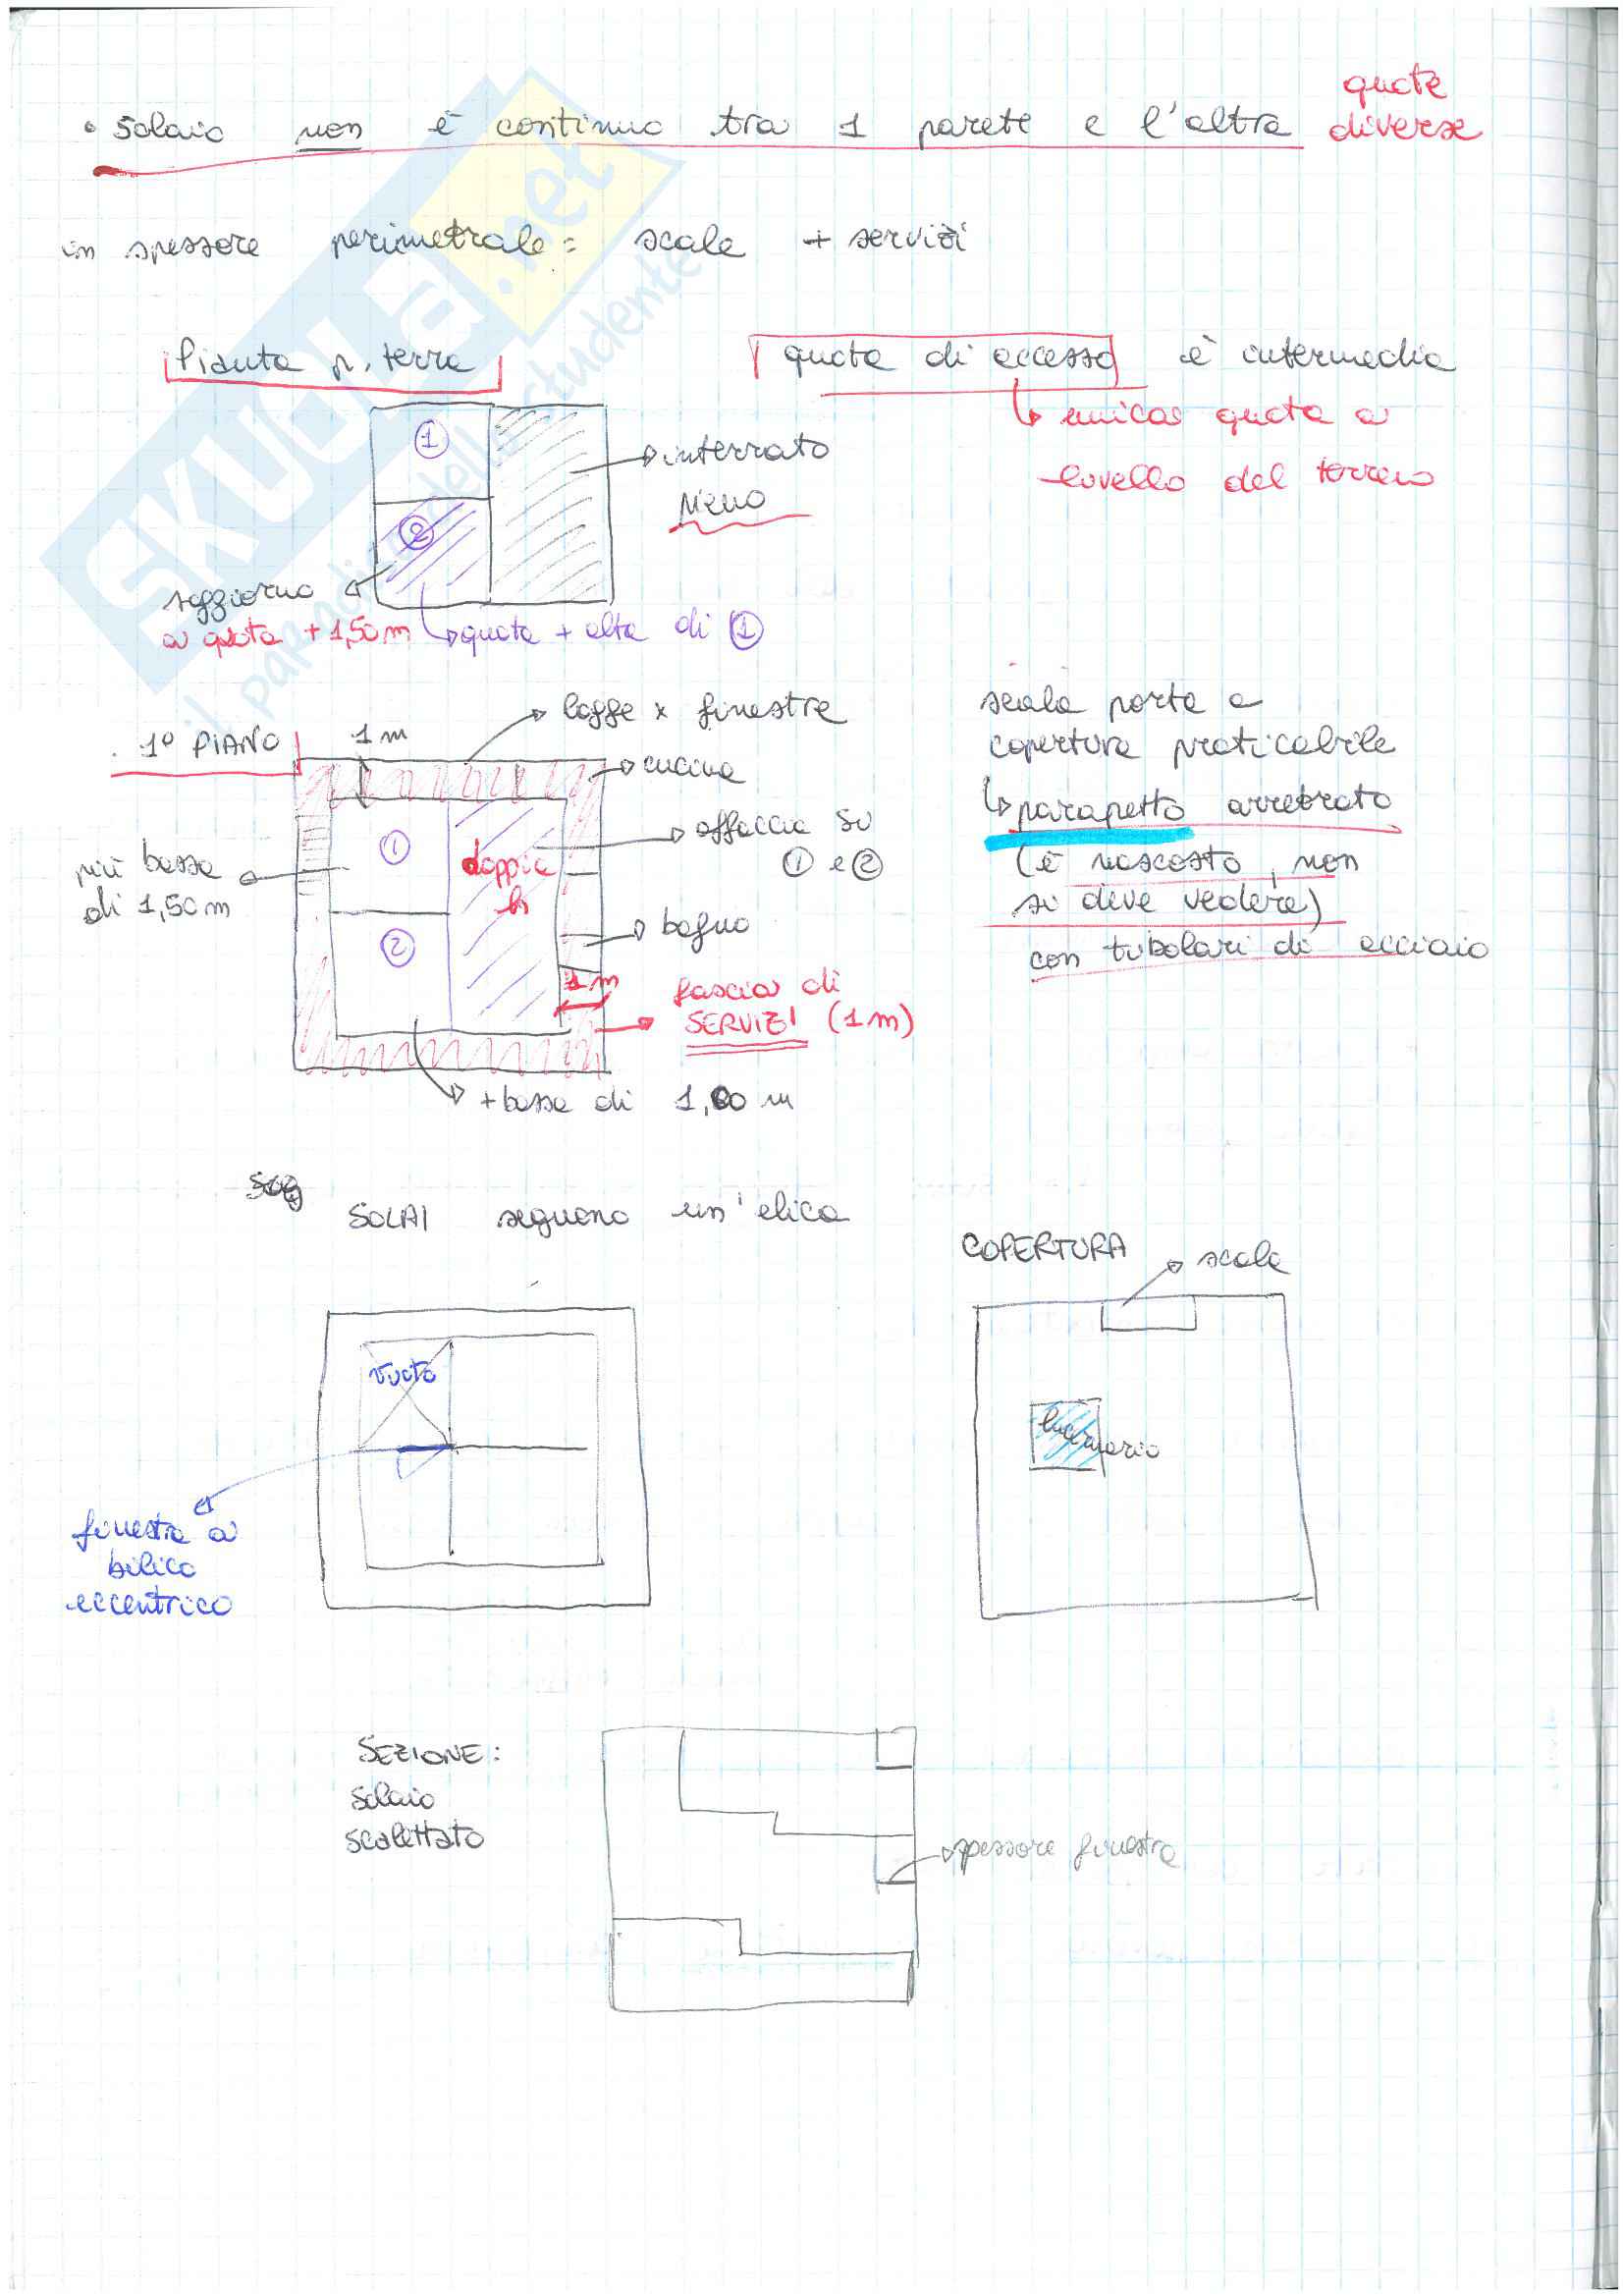 quote
• Solaio non è continuo tra 1 parete e l'altra diverse
in spessore perimetrale = scale + servizi
Pianta p. terra
quota di accesso è intermedia
↳ unica quota a
livello del terreno
1
interrato
2
soggiorno
a quota + 1,50 m
↳ quota + alta di 1
1° PIANO
1 m
logge x finestre
cucina
scala porta a
copertura praticabile
↳ parapetto arretrato
(è nascosto, non
si deve vedere)
con tubolari di acciaio
più bassa
di 1,50 m
1
doppia
h
affaccia su
1 e 2
2
bagno
1 m
fascia di
SERVIZI (1 m)
+ bassa di
SOLAI seguono un'elica
COPERTURA
scala
vuoto
lucernario
finestra a
bilico
eccentrico
SEZIONE:
solaio
scalettato
spessore finestra
SKUOLA.net
il paradiso dello studente